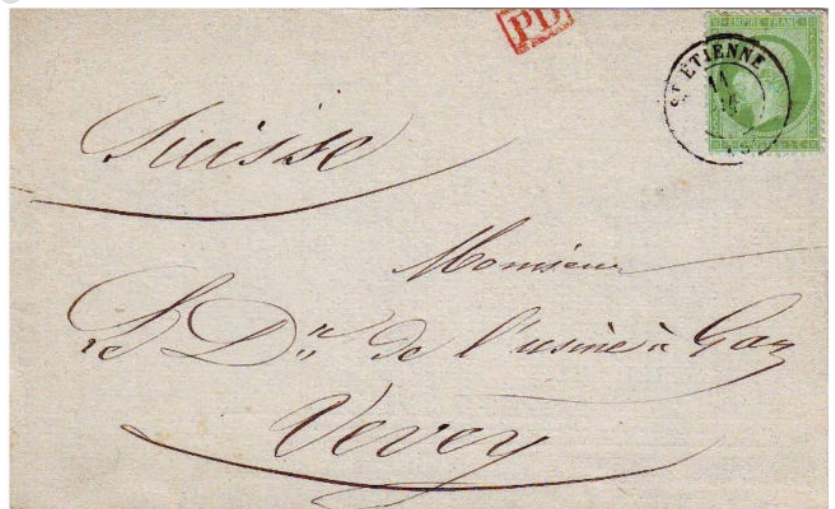 PD
EMPIRE FRANC
ST ETIENNE
11
Suisse
Monsieur
Le Dr. de l'usine à Gaz
Vevey